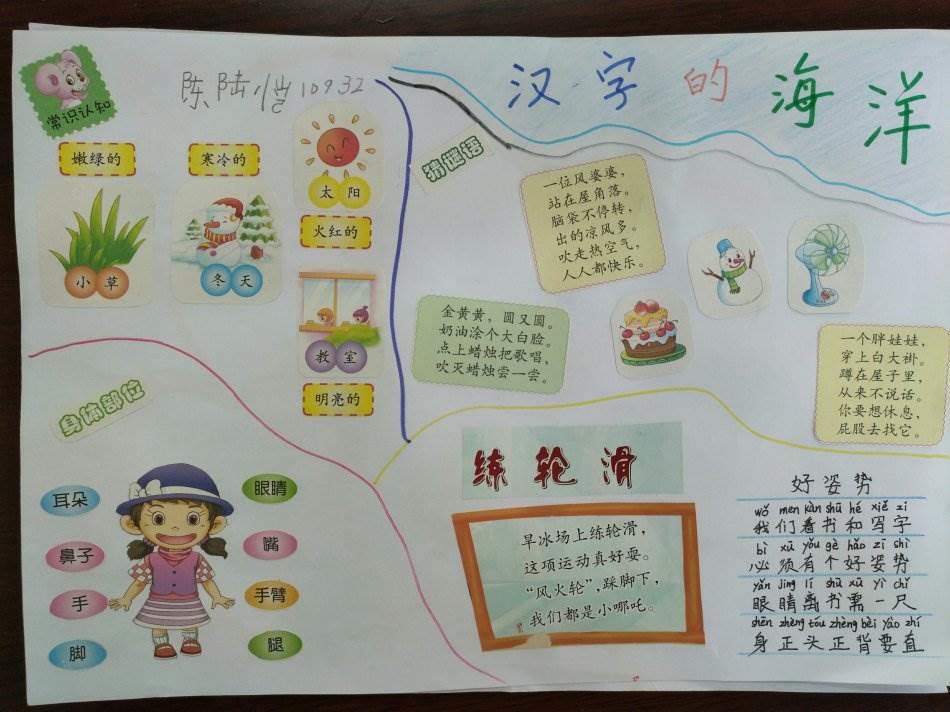 常识认知
陈陆恺 10932
汉字的海洋
嫩绿的
寒冷的
太阳
火红的
小草
冬天
教室
明亮的
猜谜语
一位风婆婆，
站在屋角落。
脑袋不停转，
出的凉风多。
吹走热空气，
人人都快乐。
金黄黄，圆又圆。
奶油涂个大白脸。
点上蜡烛把歌唱，
吹灭蜡烛尝一尝。
一个胖娃娃，
穿上白大褂。
蹲在屋子里，
从来不说话。
你要想休息，
屁股去找它。
身体部位
耳朵
鼻子
手
脚
眼睛
嘴
手臂
腿
练轮滑
旱冰场上练轮滑，
这项运动真好耍。
“风火轮”，踩脚下，
我们都是小哪吒。
好姿势
wǒ men kàn shū hé xiě zì
我们看书和写字
bì xū yǒu gè hǎo zī shì
必须有个好姿势
yǎn jing lí shū xū yì chǐ
眼睛离书需一尺
shēn zhèng tóu zhèng bèi yào zhí
身正头正背要直